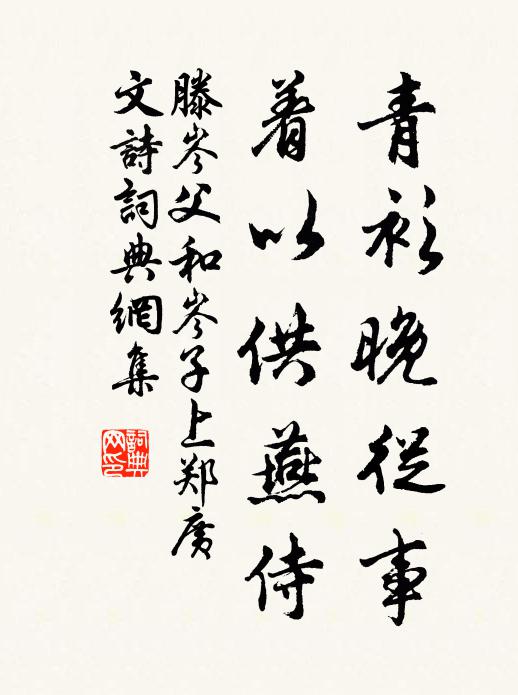 青衫晚從事
着以供燕侍
滕岑父和岑子上郑廣
文詩詞典網集
詞典网印